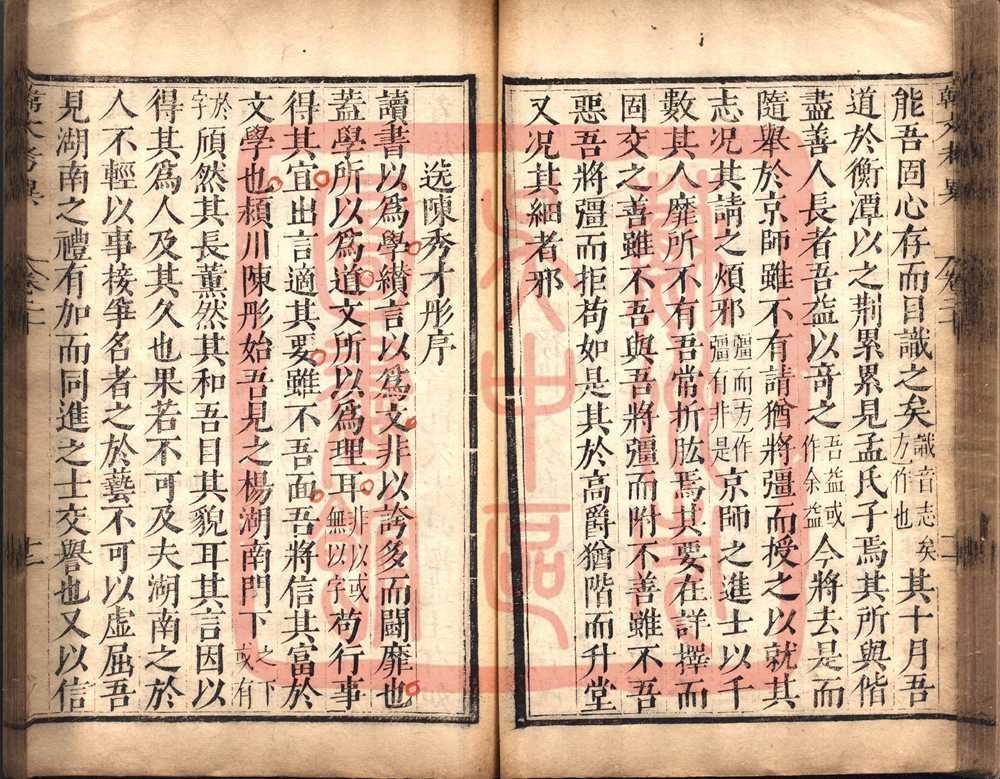 能吾固心存而目識之矣識音志矣方作也其十月吾
道於衡潭以之荆累累見孟氏子焉其所與偕
盡善人長者吾益以竒之吾益或作余益今將去是而
隨舉於京師雖不有請猶將彊而授之以就其
志况其請之煩邪彊而方作彊有非是京師之進士以千
數其人靡所不有吾常折肱焉其要在詳擇而
固交之善雖不吾與吾將彊而附不善雖不吾
惡吾將彊而拒苟如是其於高爵猶階而升堂
又况其細者邪
送陳秀才彤序
讀書以爲學纘言以爲文非以誇多而鬭靡也
蓋學所以爲道文所以爲理耳非以或無以字苟行事
得其宜出言適其要雖不吾面吾將信其富於
文學也頴川陳彤始吾見之楊湖南門下之下或有
於字頎然其長薰然其和吾目其貌耳其言因以
得其爲人及其久也果若不可及夫湖南之於
人不輕以事接爭名者之於藝不可以虚屈吾
見湖南之禮有加而同進之士交譽也又以信